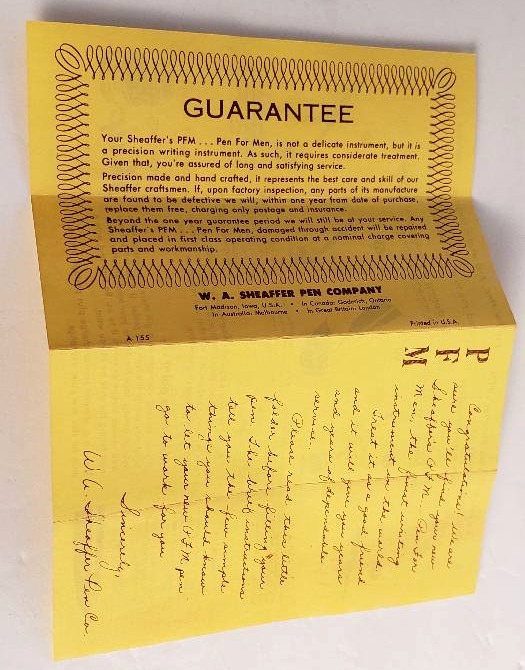 GUARANTEE
Your Sheaffer's PFM ... Pen For Men, is not a delicate instrument, but it is
a precision writing instrument. As such, it requires considerate treatment.
Given that, you're assured of long and satisfying service.
Precision made and hand crafted, it represents the best care and skill of our
Sheaffer craftsmen. If, upon factory inspection, any parts of its manufacture
are found to be defective we will, within one year from date of purchase,
replace them free, charging only postage and insurance.
Beyond the one year guarantee period we will still be at your service. Any
Sheaffer's PFM ... Pen For Men, damaged through accident will be repaired
and placed in first class operating condition at a nominal charge covering
parts and workmanship.
W. A. SHEAFFER PEN COMPANY
Fort Madison, Iowa, U.S.A. • In Canada: Goderich, Ontario
In Australia: Melbourne • In Great Britain: London
A 155
Printed in U.S.A.
PFM
Congratulations! We are
sure you'll find your new
Sheaffer's PFM Pen For
Men the finest writing
instrument in the world.
Treat it as a good friend
and it will give you years
and years of dependable
service.
Please read this little
folder before filling your
pen. The brief instructions
tell you the few simple
things you should know
to let your new PFM pen
go to work for you
Sincerely,
W. A. Sheaffer Pen Co.